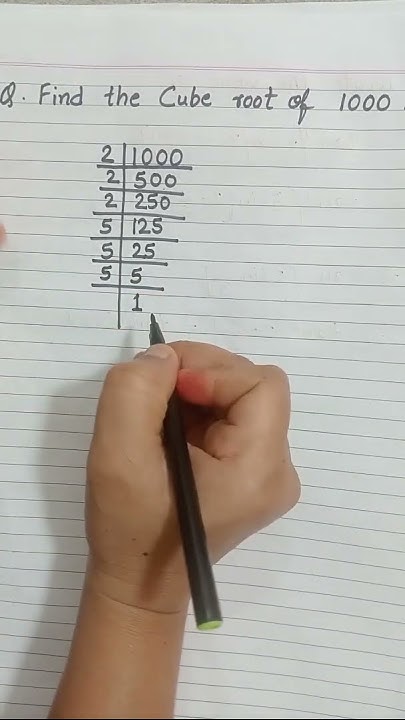 Q. Find the Cube root of 1000
2 1000
2 500
2 250
5 125
5 25
5 5
1